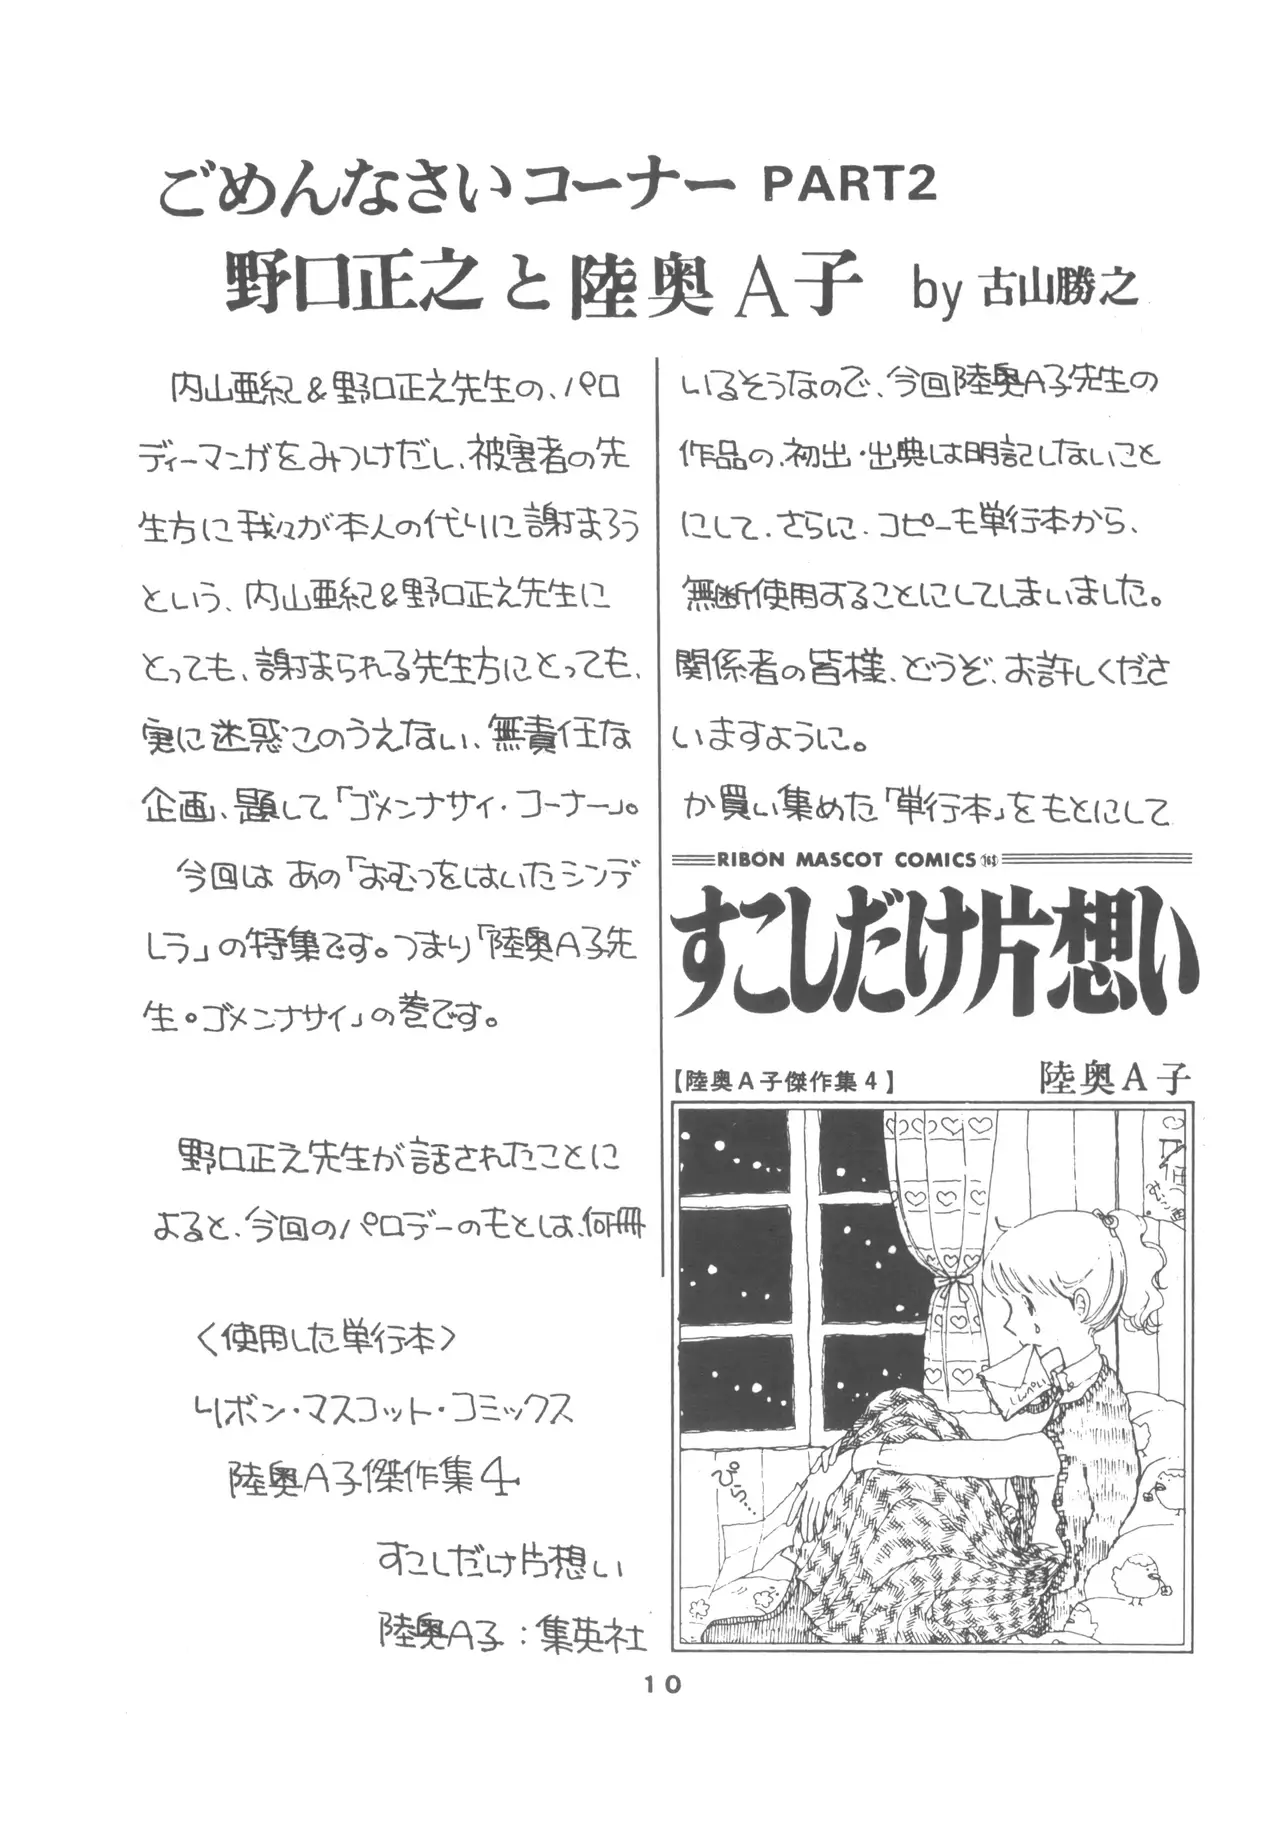 ごめんなさいコーナー PART2
野口正之と陸奥A子 by 古山勝之
内山亜紀&野口正之先生の、パロ
ディーマンガをみつけだし、被害者の先
生方に我々が本人の代りに謝まろう
という、内山亜紀&野口正之先生に
とっても、謝まられる先生方にとっても、
実に迷惑このうえない、無責任な
企画、題して「ゴメンナサイ・コーナー」。
今回は あの「おむつをはいたシンデ
レラ」の特集です。つまり「陸奥A子先
生。ゴメンナサイ」の巻です。
野口正之先生が話されたことに
よると、今回のパロデーのもとは、何冊
か買い集めた「単行本」をもとにして
いるそうなので、今回陸奥A子先生の
作品の、初出・出典は明記しないこと
にして、さらに、コピーも単行本から、
無断使用することにしてしまいました。
関係者の皆様、どうぞ、お許しくださ
いますように。
〈使用した単行本〉
リボン・マスコット・コミックス
陸奥A子傑作集4
すこしだけ片想い
陸奥A子：集英社
RIBON MASCOT COMICS 163
すこしだけ片想い
【陸奥A子傑作集4】
陸奥A子
ぴら…
10